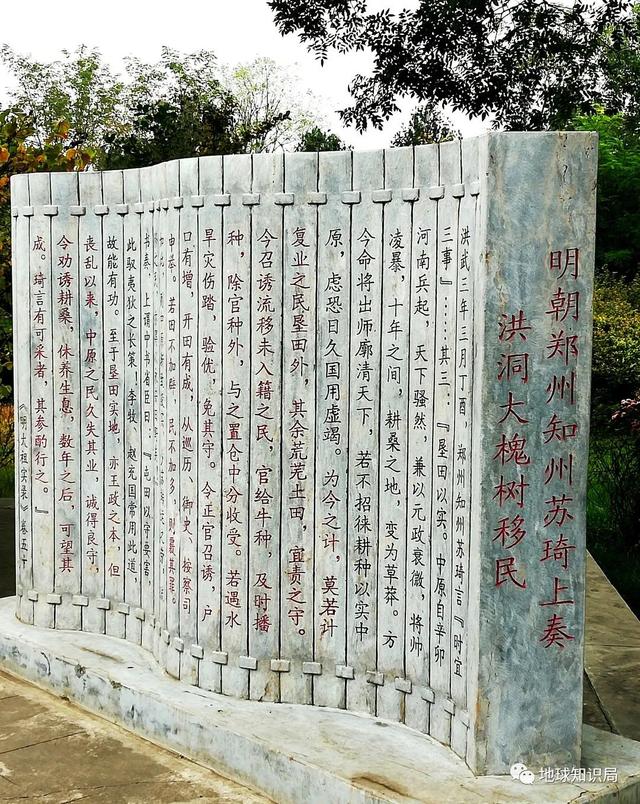 明朝郑州知州苏琦上奏
洪洞大槐树移民
洪武三年三月丁酉，郑州知州苏琦言『时宜
三事』……其三：『垦田以实。中原自辛卯
河南兵起，天下骚然，兼以元政衰微，将帅
凌暴，十年之间，耕桑之地，变为草莽。方
今命将出师廓清天下，若不招徕耕种以实中
原，虑恐日久国用虚竭。为今之计，莫若计
复业之民垦田外，其余荒芜土田，宜责之守。
今召诱流移未入籍之民，官给牛种，及时播
种，除官种外，与之置仓中分收受。若遇水
旱灾伤踏，验优，免其守。令正官召诱，户
口有增，开田有成，从巡历、御史、按察司
申举。若田不加辟，民不加多，则覆其罪。
如此，
书奏，上谓中书省臣曰：『屯田以守要害，
此驭夷狄之长策！李牧、赵充国常用此道
故能有功。至于垦田实地，亦王政之本，但
丧乱以来，中原之民久失其业，诚得良守
令劝诱耕桑，休养生息，数年之后，可望其
成。琦言有可采者，其参酌行之。』
《明太祖实录》卷五十
地球知识局